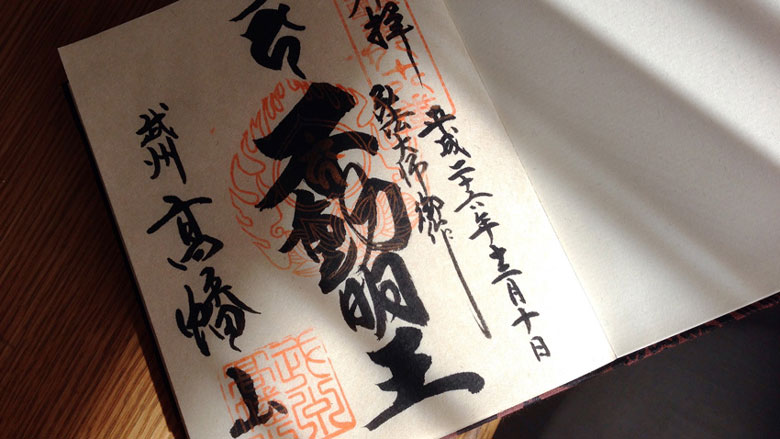 拝
平成二十六年十二月十日
弘法大師御作
不動明王
武州 高幡山